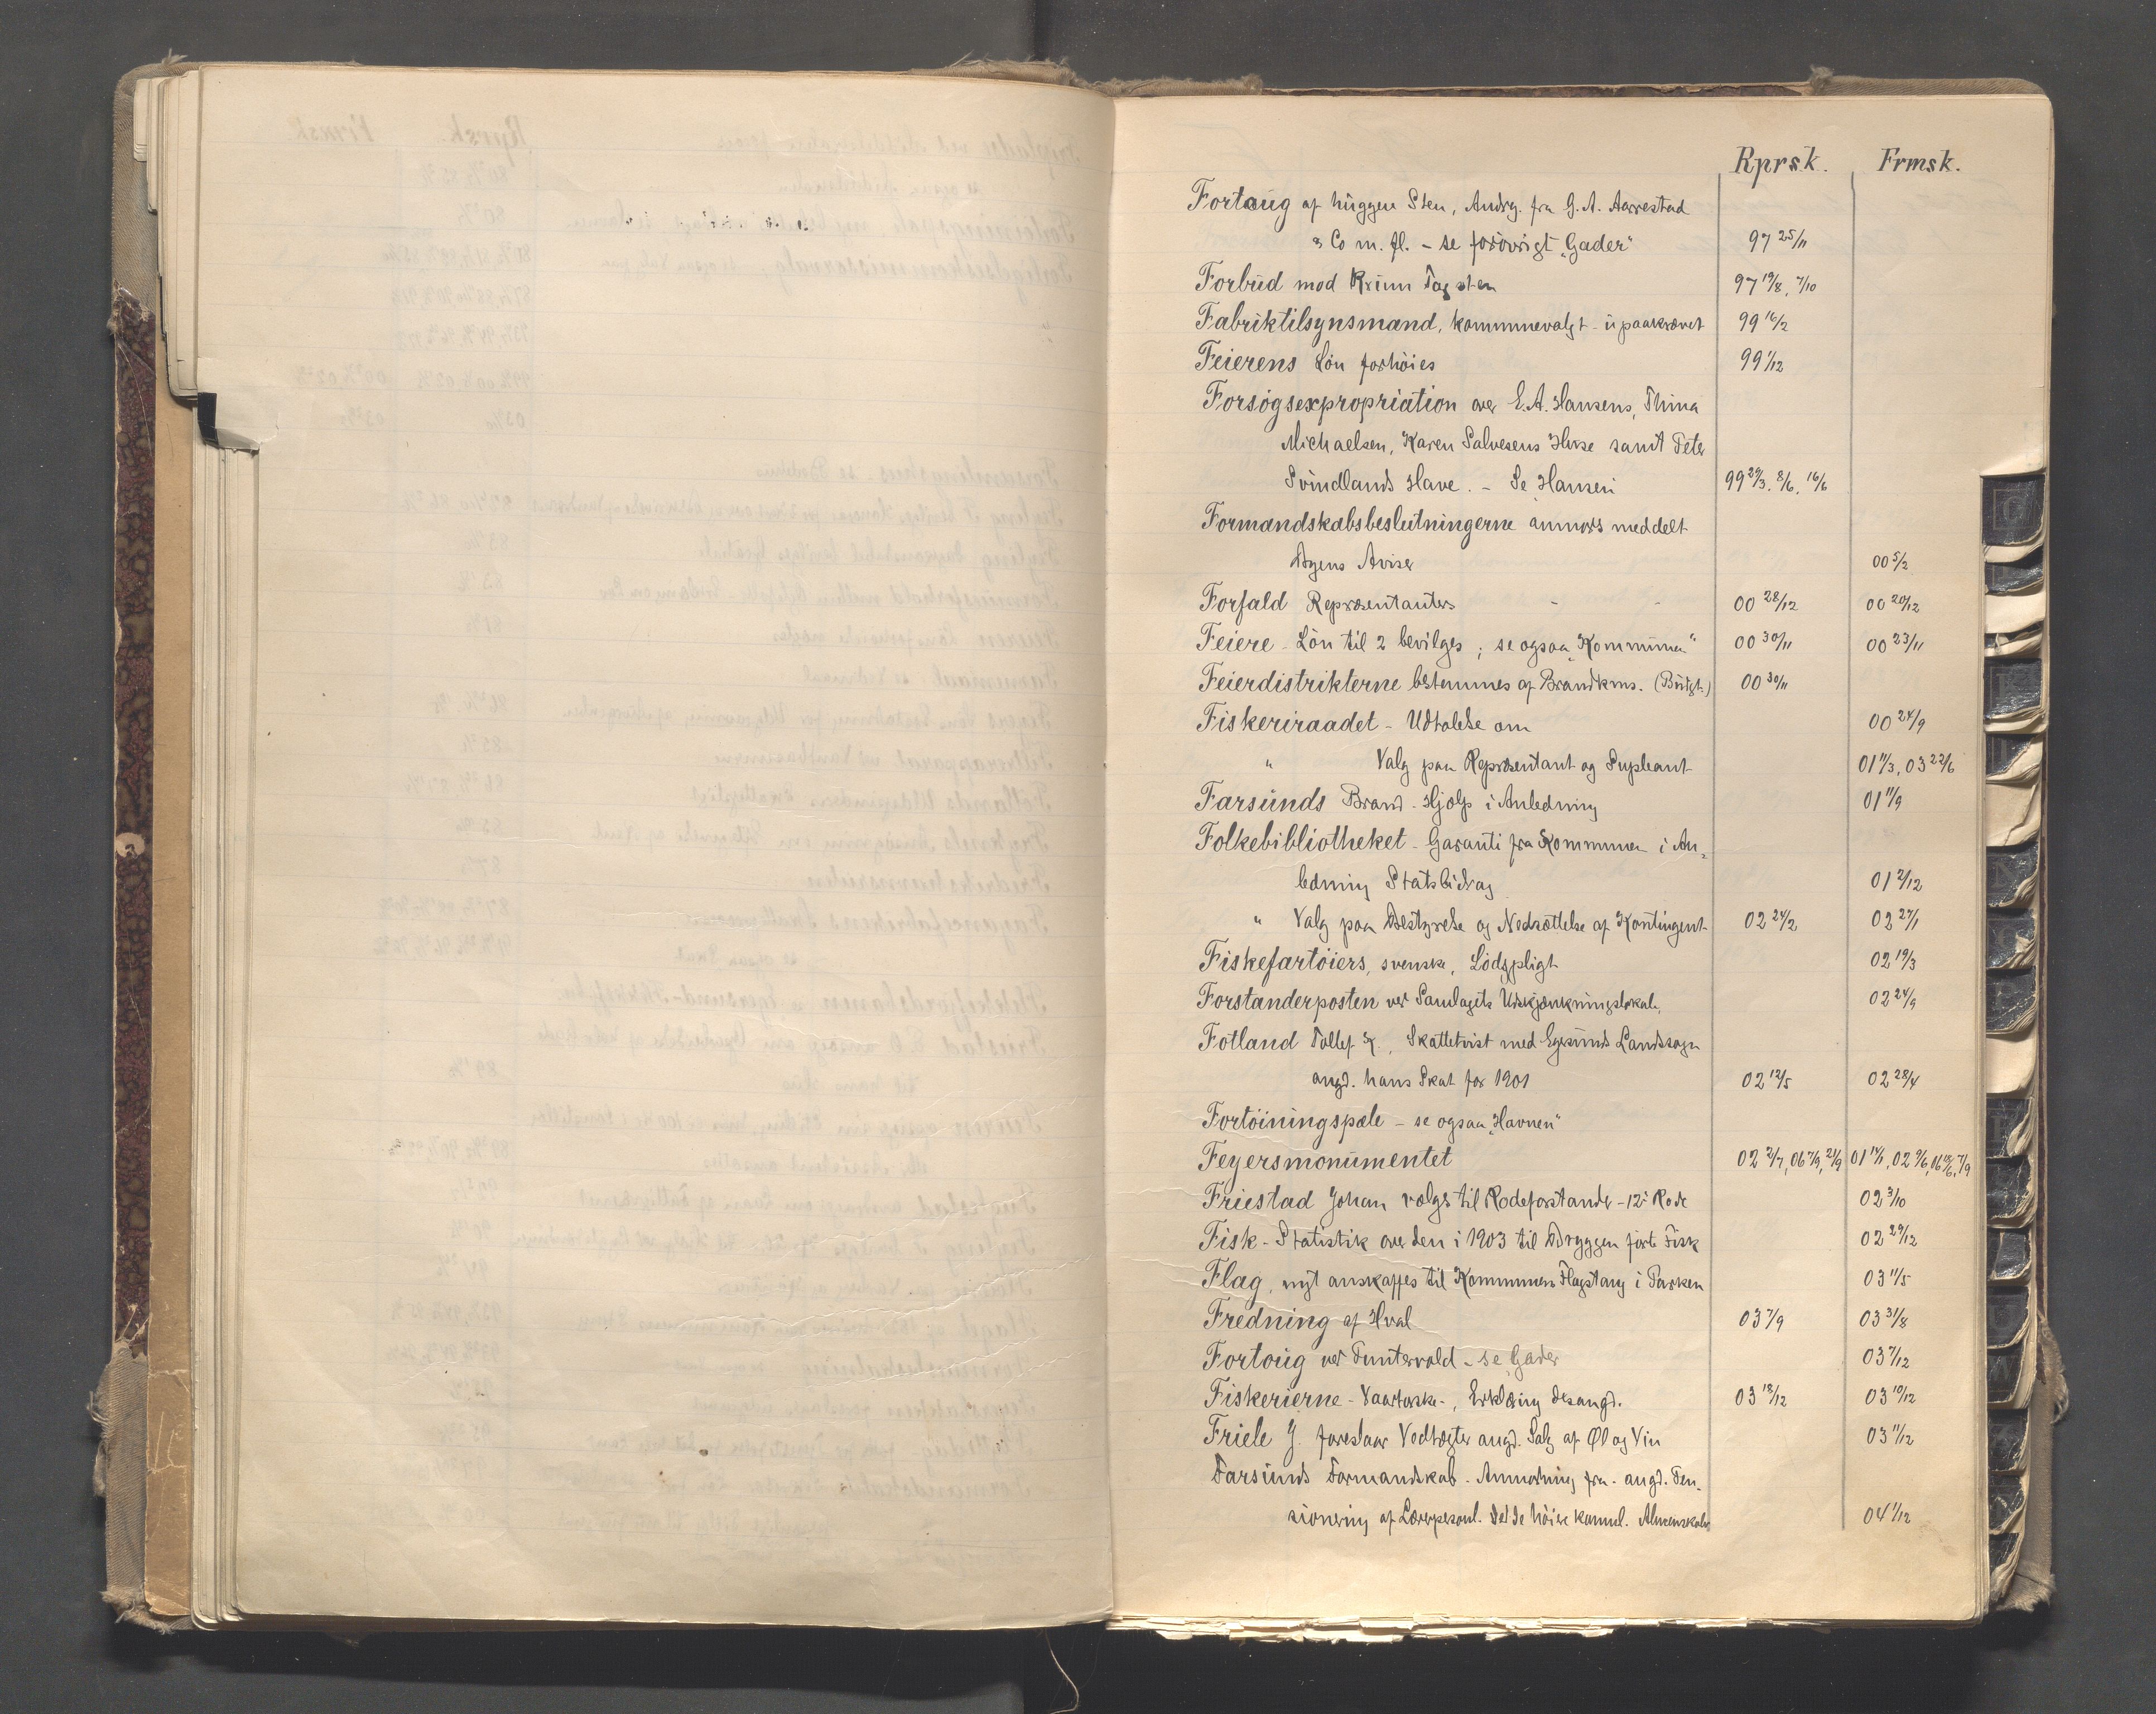 Rprsk. Frmsk.
Fortoug af huggen Sten, Andrg. fra G. A. Aarrestad
& Co m. fl. - se forövrigt „Gader" 97 25/11
Forbud mod Krum Tagsten 97 19/8, 7/10
Fabriktilsynsmand, kommunevalgt - upaakrævet 99 16/2
Feierens Lön forhöies 99 1/12
Forsögsexpropriation over E. A. Hansens, Thina
Michaelsen, Karen Salvesens Huse samt Peter
Svindlands Have. - Se „Hansen" 99 29/3, 8/6, 16/6
Formandskabsbeslutningerne anmods meddelt
Byens Aviser 00 5/2
Forfald Repræsentanters - - 00 28/12 00 20/12
Feiere - Lön til 2 bevilges ; se ogsaa „Kommunen" 00 30/11 00 23/11
Feierdistrikterne bestemmes af Brandkms. (Budgt.) 00 30/11
Fiskeriraadet - Udtalelse om 00 24/9
" Valg paa Repræsentant og Supleant 01 11/3, 03 22/6
Farsunds Brand - Hjælp i Anledning 01 11/9
Folkebibliotheket - Garanti fra Kommunen i An-
ledning Statsbidrag 01 2/12
" Valg paa Bestyrelse og Nedsættelse af Kontingent 02 24/2 02 27/1
Fiskefartöiers, svenske, Lodspligt 02 19/3
Forstanderposten ved Samlagets Udskjænkningslokale 02 24/9
Fotland Tollef K., Skattetvist med Egersunds Landssogn
angd. hans Skat for 1901 02 12/5 02 28/4
Fortöiningspæle - se ogsaa „Havnen"
Feyersmonumentet 02 2/7, 06 7/9, 21/9 01 14/1, 02 9/6, 06 18/6, 7/9
Friestad Johan vælges til Rodeforstander - 12te Rode 02 3/10
Fisk - Statistik over den i 1903 til Bryggen förte Fisk 02 29/12
Flag, nyt anskaffes til Kommunens Flagstang i Parken 03 11/5
Fredning af Hval 03 7/9 03 31/8
Fortoug ved Tuntervold - se Gader 03 7/12
Fiskerierne - Vaartorske-, Erklæring desangd. 03 18/12 03 10/12
Friele J. foreslaar Vedtægter angd. Salg af Øl og Vin 03 11/12
Farsunds Formandskab - Anmodning fra - angd. Pen-
sionering af Lærerpersonl. ved de höiere komml. Almenskoler 04 1/12